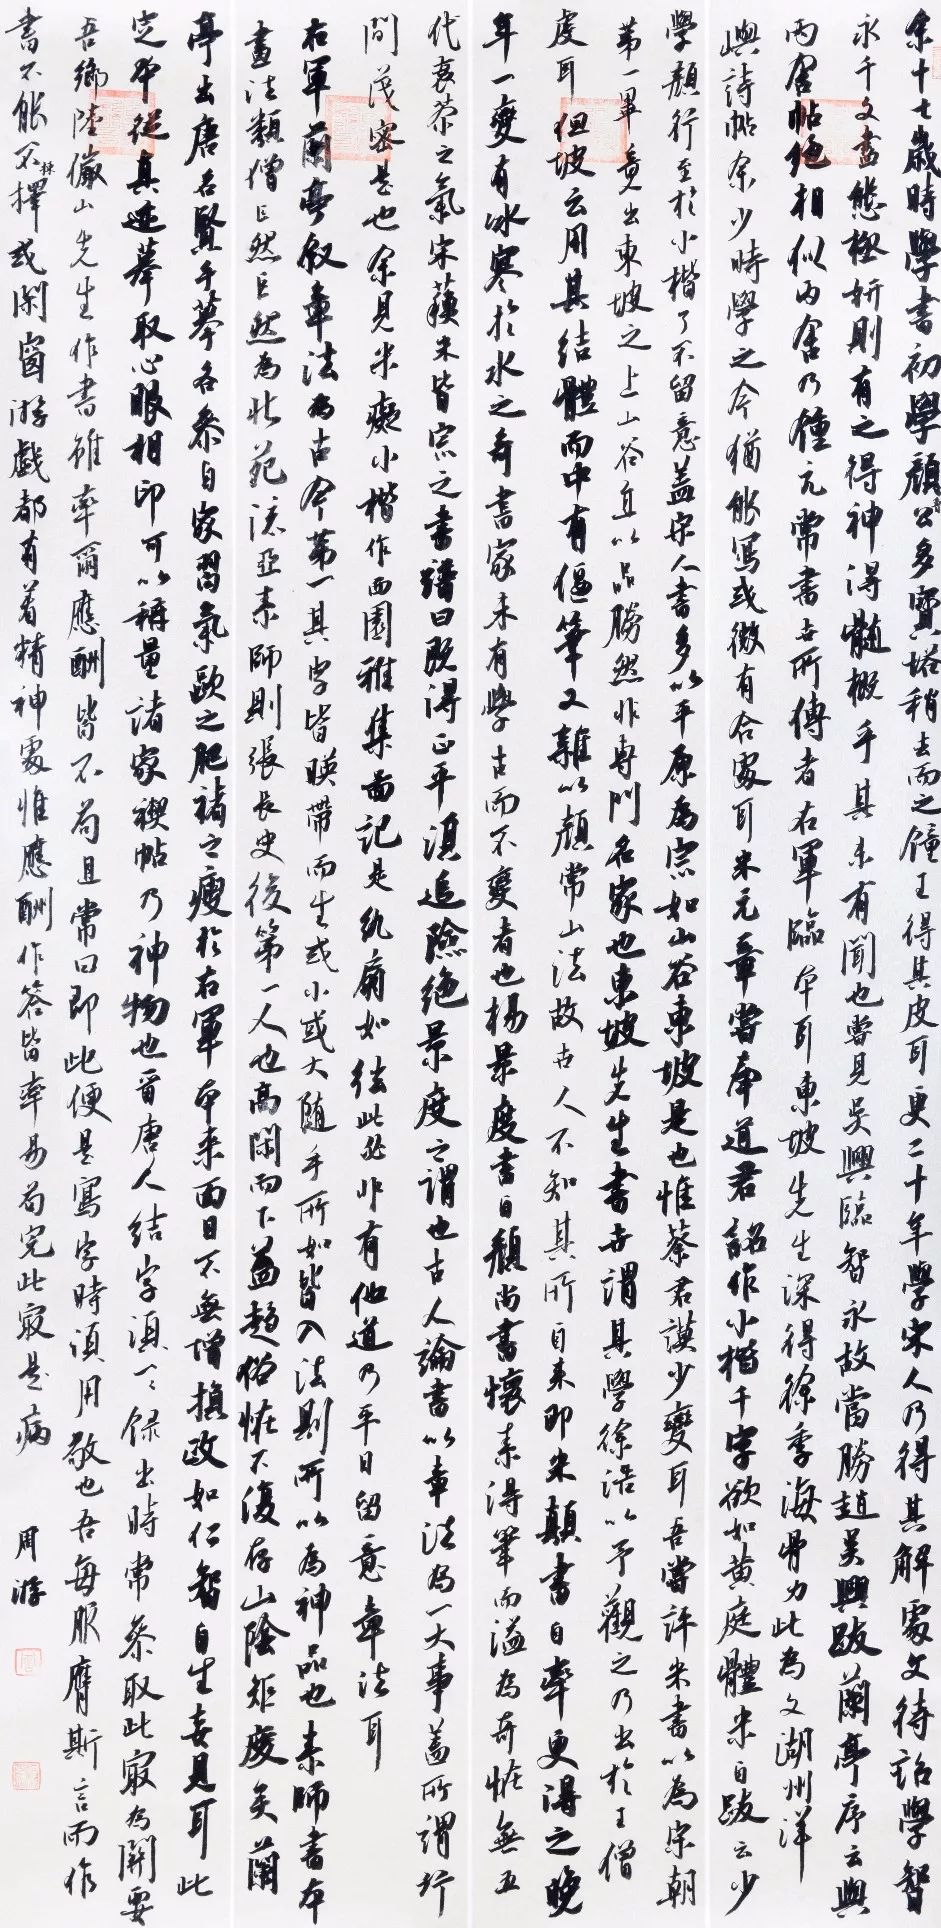 余十七歲時學書初學顏魯公多寶塔稍去而之鍾王得其皮耳更二十年學宋人乃得其解處文待詔學智
永千文盡態極妍則有之得神得髓概乎其未有聞也嘗見吳興臨智永故當勝趙吳興跋蘭亭序云與
丙舍帖絕相似丙舍乃鍾元常書世所傳者右軍臨本耳東坡先生深得徐季海骨力此為文湖州洋
嶼詩帖余少時學之今猶能寫或微有合處耳米元章嘗奉道君詔作小楷千字欲如黃庭體米自跋云少
學顏行至於小楷了不留意蓋宋人書多以平原為宗如山谷東坡是也惟蔡君謨少變耳吾嘗評米書以為宋朝
第一畢竟出東坡之上山谷直以品勝然非專門名家也東坡先生書世謂其學徐浩以予觀之乃出於王僧
虔耳但坡云用其結體而中有偃筆又雜以顏常山法故古人不知其所自來即米顛書自率更得之晚
年一變有冰寒於水之奇書家未有學古而不變者也楊景度書自顏尚書懷素得筆而溢為奇恠無五
代衰苶之氣宋蘇米皆宗之書譜曰既得平正須追險絕景度之謂也古人論書以章法為一大事蓋所謂行
間茂密是也余見米癡小楷作西園雅集圖記是紈扇如弦此必非有他道乃平日留意章法耳
右軍蘭亭敘章法為古今第一其字皆映帶而生或小或大隨手所如皆入法則所以為神品也素師書本
畫法類僧巨然巨然為北苑流亞素師則張長史後第一人也高閑而下益趨俗恠不復存山陰矩度矣蘭
亭出唐名賢手摹各參自家習氣歐之肥褚之瘦於右軍本來面目不無增損政如仁智自生妄見耳此
定本從真迹摹取心眼相印可以稱量諸家禊帖乃神物也晉唐人結字須一一錄出時常參取此最為關要
吾鄉陸儼山先生作書雖率爾應酬皆不苟且常曰即此便是寫字時須用敬也吾每服膺斯言而作
書不能不擇或閑窗游戲都有著精神處惟應酬作答皆率易苟完此最是病
周游